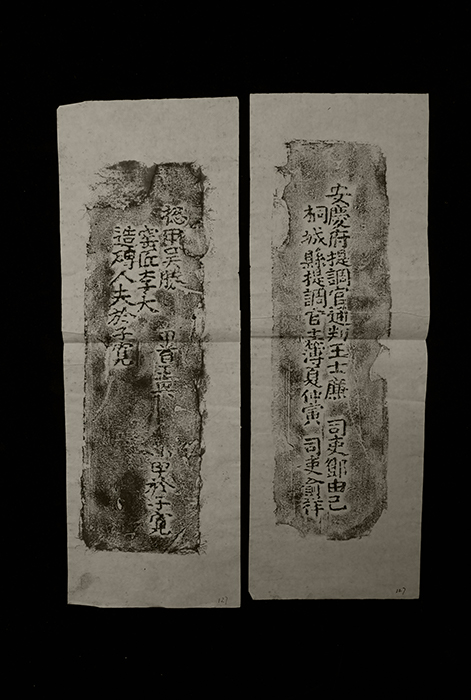 安慶府提調官通判王士廉 司吏鄒由己
桐城縣提調官主簿夏仲寅 司吏俞祥
總甲吴勝 甲首汪興 小甲於子寛
窑匠李大
造磚人夫於子寛